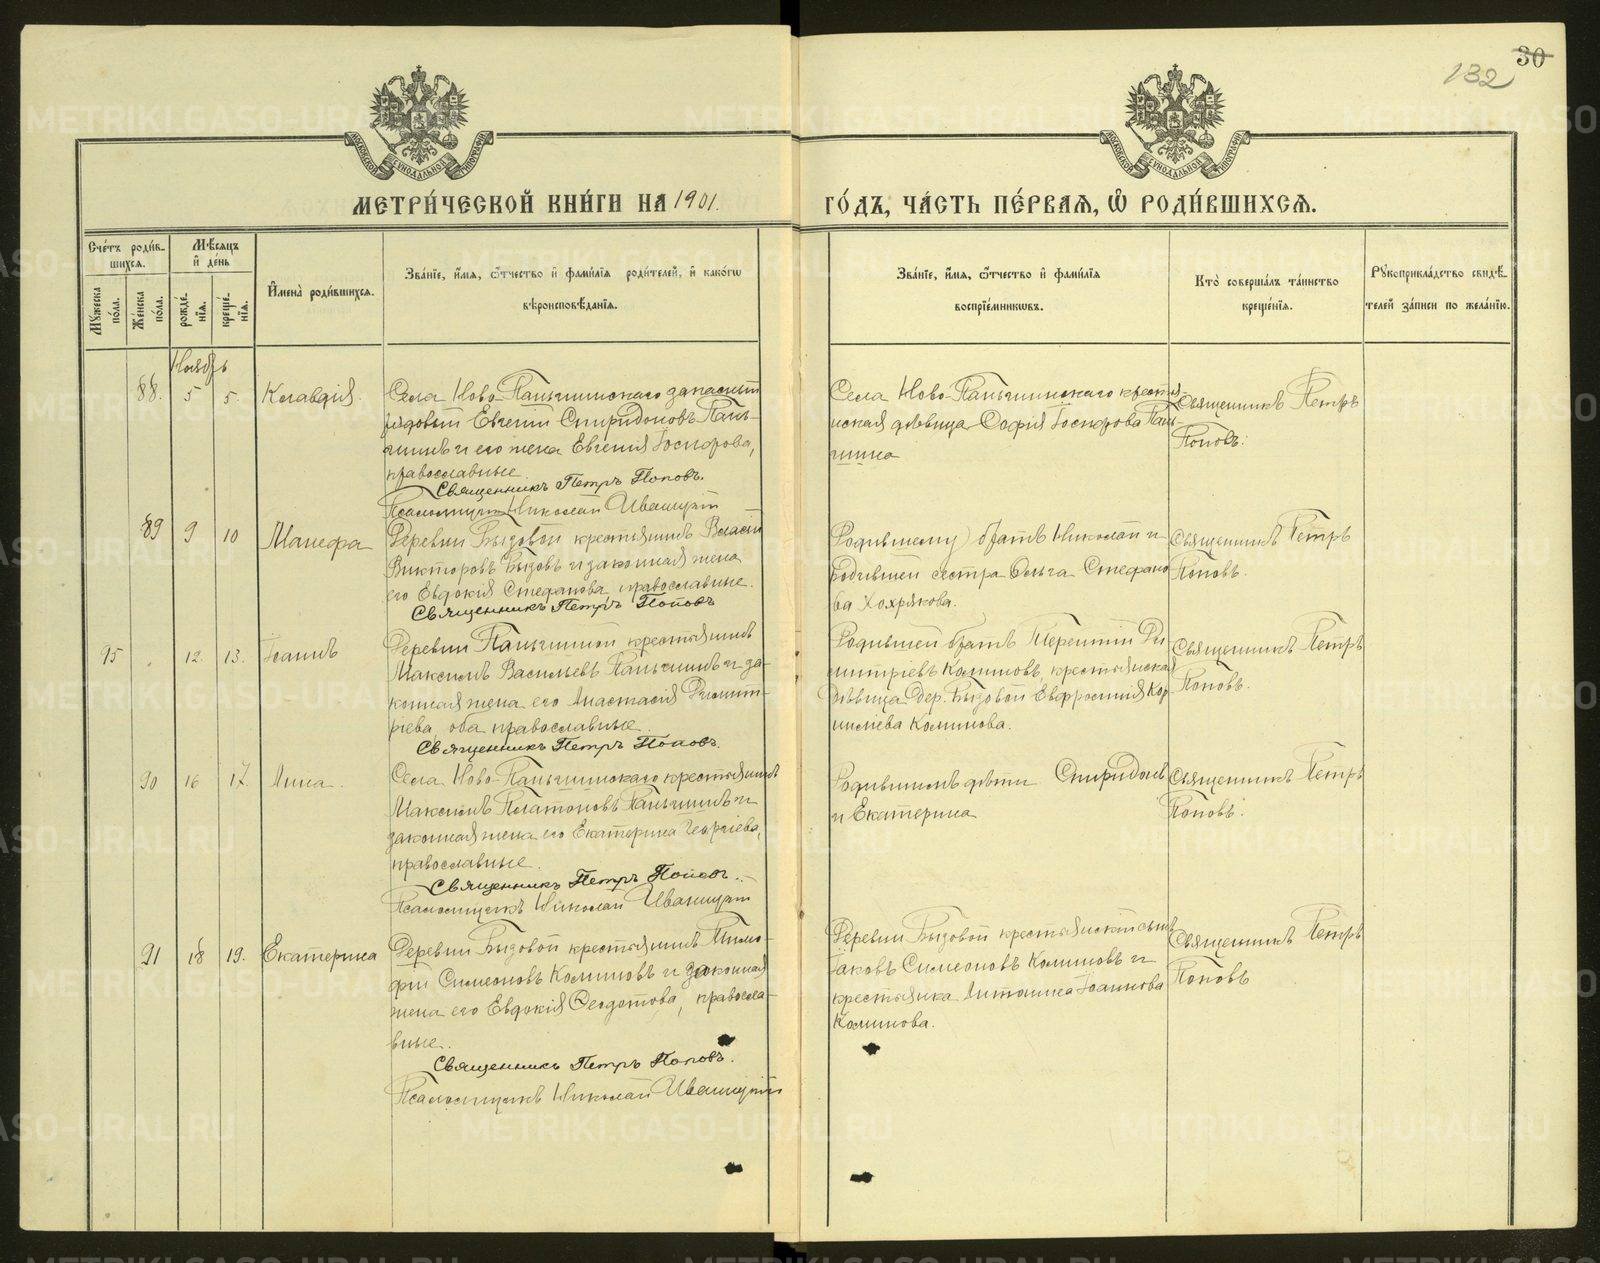 30
132
МЕТРИ́ЧЕСКОЙ КНИ́ГИ НА 1901.
ГО́ДЪ, ЧА́СТЬ ПЕ́РВАЯ, Ѽ РОДИ́ВШИХСЯ.
Сче́тъ роди́в-
шихся.
Мѣ́сяцъ
и҆ де́нь
Мꙋ́жеска
по́ла.
Же́нска
по́ла.
рожде́-
нїѧ.
креще́-
нїѧ.
И҆мена̀ роди́вшихся.
Зва́нїе, и҆́мя, ѻ҆́тчество и҆ фами́лїя роди́телей, и҆ како́гѡ
вѣроисповѣ́данїя.
Зва́нїе, и҆́мя, ѻ҆́тчество и҆ фами́лїя
воспрїе́мникѡвъ.
Кто̀ соверша́лъ та́инство
креще́нїя.
Рꙋкоприкла́дство свидѣ́-
телей за́писи по жела́нїю.
Ноябрь
88. 5 5. Клавдія.
Села Ново-Паньшинскаго запасный
рядовый Евгеній Спиридоновъ Пань-
шинъ и его жена Евгенія Іосифова,
православные
Священникъ Петръ Поповъ.
Псаломщикъ Николай Иваницкій
Села Ново-Паньшинскаго крестья
нская дѣвица Софія Іосифова Пань-
шина
Священникъ Петръ
Поповъ.
89 9 10 Манефа
Деревни Бызовой крестьянинъ Власій
Викторовъ Бызовъ и законная жена
его Евдокія Стефанова, православные.
Священникъ Петръ Поповъ
Родившему братъ Николай и
Родившей сестра Ольга Стефано
ва Хохрякова.
Священникъ Петръ
Поповъ.
95 12. 13. Іоаннъ
Деревни Паньшиной крестьянинъ
Максимъ Васильевъ Паньшинъ и за-
конная жена его Анастасія Димит-
ріева, оба православные.
Священникъ Петръ Поповъ.
Родившей братъ Терентій Ди
митріевъ Колиновъ, крестьянская
Дѣвица дер. Бызовой Евфросинія Кор-
ниліева Колинова.
Священникъ Петръ
Поповъ.
90 16 17. Анна.
Села Ново-Паньшинскаго крестьянинъ
Максимъ Платоновъ Паньшинъ и
законная жена его Екатерина Георгіева,
православные.
Священникъ Петръ Поповъ.
Псаломщикъ Николай Иваницкій
Родившимъ дѣти Спиридонъ
и Екатерина
Священникъ Петръ
Поповъ.
91 18 19. Екатерина
Деревни Бызовой крестьянинъ Тимо-
фій Симеоновъ Колиновъ и законная
жена его Евдокія Ѳеодотова, правосла-
вные.
Священникъ Петръ Поповъ.
Псаломщикъ Николай Иваницкій
Деревни Бызовой крестьянскій сынъ
Іаковъ Симеоновъ Колиновъ и
крестьянка Антонина Іоаннова
Колинова.
Священникъ Петръ
Поповъ